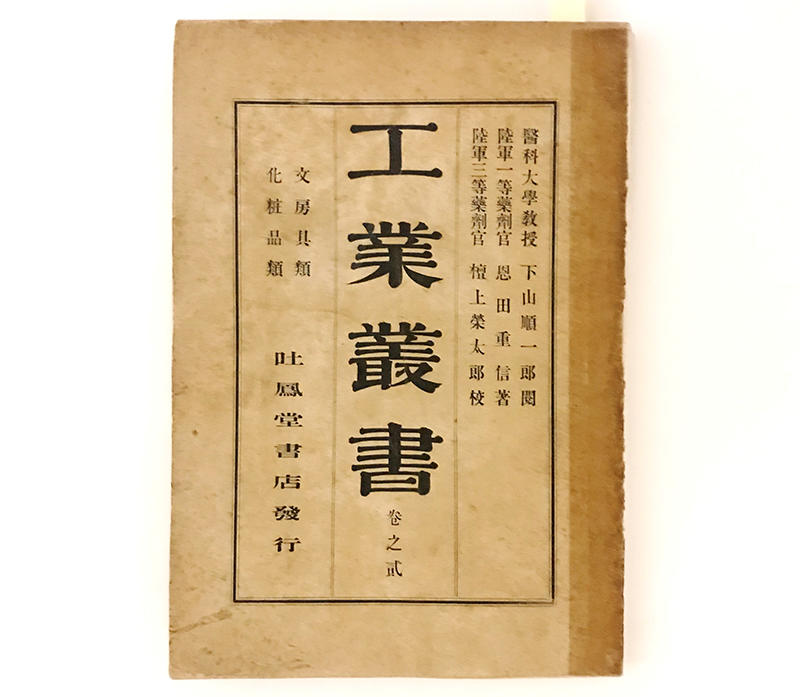 醫科大學敎授 下山順一郎閱
陸軍一等藥劑官 恩田重信著
陸軍三等藥劑官 檀上榮太郎校
工業叢書 卷之貳
文房具類
化粧品類
吐鳳堂書店發行